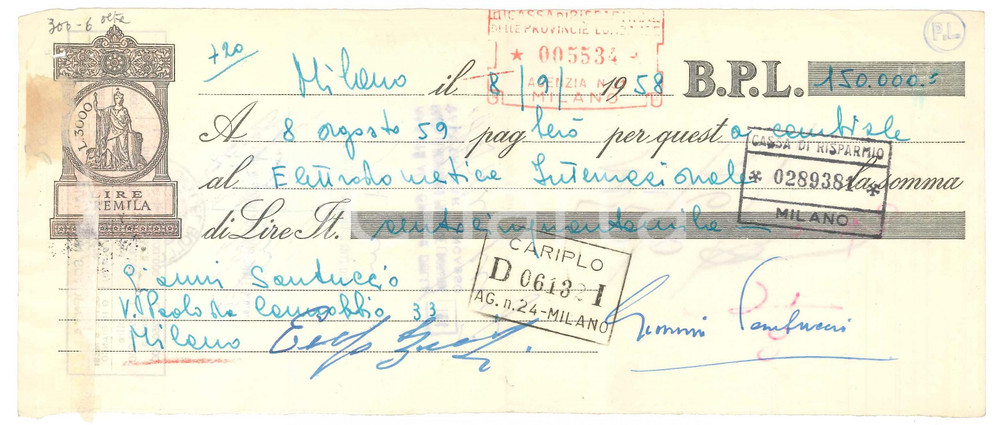 300-6 
720
Milano il 8/9/1958 B.P.L. 150.000.=
A 8 agosto 59 pagherò per questa cambiale
al Elettrodomestica Internazionale la somma
di Lire It. centocinquantamila
Gianni Santuccio
V. Paolo da Cannobbio 33
Milano
Gianni Santuccio
L. 3000
LIRE
TREMILA
CASSA DI RISP
DELLE PROVINCIE LOMB
* 005534 *
AGENZIA N
MILANO
P.L.
CASSA DI RISPARMIO
* 0289381 *
MILANO
CARIPLO
D 06132 I
AG. n. 24-MILANO